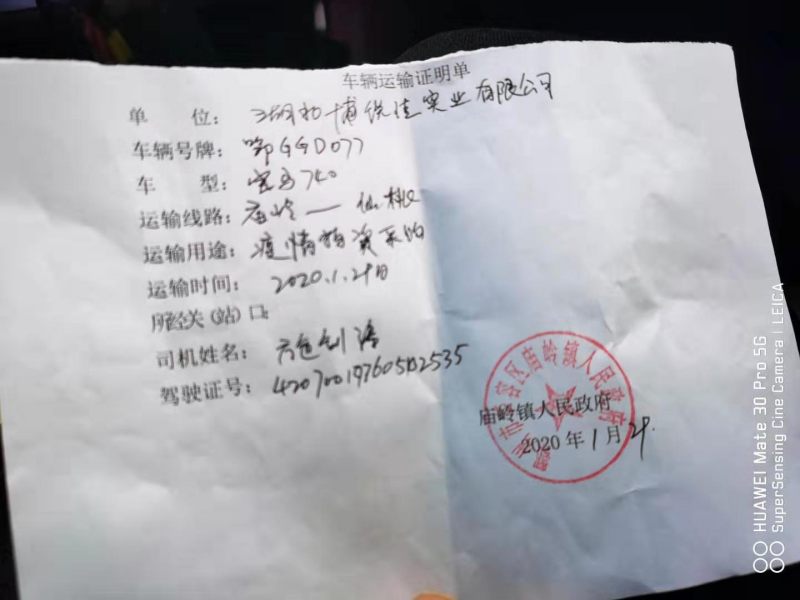 车辆运输证明单
单 位：湖北博锐佳实业有限公司
车辆号牌：鄂GGD077
车 型：宝马740
运输线路：庙岭—仙桃
运输用途：疫情物资采购
运输时间：2020.1.29日
所经关（站）口：
司机姓名：
驾驶证号：
鄂州市华容区庙岭镇人民政府
庙岭镇人民政府
2020年1月29.
HUAWEI Mate 30 Pro 5G
SuperSensing Cine Camera | LEICA